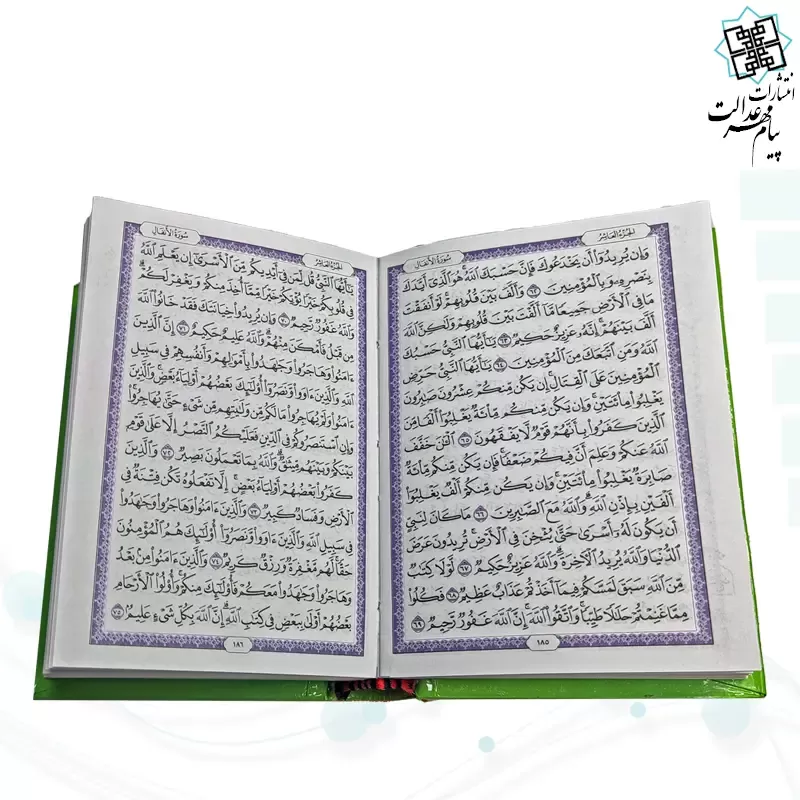 انتشارات
پیام مهر عدالت
الجزء العاشر
سورة الأنفال
وَإِن يُرِيدُوٓا۟ أَن يَخْدَعُوكَ فَإِنَّ حَسْبَكَ ٱللَّهُ هُوَ ٱلَّذِىٓ أَيَّدَكَ
بِنَصْرِهِۦ وَبِٱلْمُؤْمِنِينَ ٦٢ وَأَلَّفَ بَيْنَ قُلُوبِهِمْ لَوْ أَنفَقْتَ
مَا فِى ٱلْأَرْضِ جَمِيعًا مَّآ أَلَّفْتَ بَيْنَ قُلُوبِهِمْ وَلَـٰكِنَّ ٱللَّهَ
أَلَّفَ بَيْنَهُمْ إِنَّهُۥ عَزِيزٌ حَكِيمٌ ٦٣ يَـٰٓأَيُّهَا ٱلنَّبِىُّ حَسْبُكَ
ٱللَّهُ وَمَنِ ٱتَّبَعَكَ مِنَ ٱلْمُؤْمِنِينَ ٦٤ يَـٰٓأَيُّهَا ٱلنَّبِىُّ حَرِّضِ
ٱلْمُؤْمِنِينَ عَلَى ٱلْقِتَالِ إِن يَكُن مِّنكُمْ عِشْرُونَ صَـٰبِرُونَ
يَغْلِبُوا۟ مِا۟ئَتَيْنِ وَإِن يَكُن مِّنكُم مِّا۟ئَةٌ يَغْلِبُوٓا۟ أَلْفًا مِّنَ
ٱلَّذِينَ كَفَرُوا۟ بِأَنَّهُمْ قَوْمٌ لَّا يَفْقَهُونَ ٦٥ ٱلْـَٔـٰنَ خَفَّفَ
ٱللَّهُ عَنكُمْ وَعَلِمَ أَنَّ فِيكُمْ ضَعْفًا فَإِن يَكُن مِّنكُم مِّا۟ئَةٌ
صَابِرَةٌ يَغْلِبُوا۟ مِا۟ئَتَيْنِ وَإِن يَكُن مِّنكُمْ أَلْفٌ يَغْلِبُوٓا۟
أَلْفَيْنِ بِإِذْنِ ٱللَّهِ وَٱللَّهُ مَعَ ٱلصَّـٰبِرِينَ ٦٦ مَا كَانَ لِنَبِىٍّ
أَن يَكُونَ لَهُۥٓ أَسْرَىٰ حَتَّىٰ يُثْخِنَ فِى ٱلْأَرْضِ تُرِيدُونَ عَرَضَ
ٱلدُّنْيَا وَٱللَّهُ يُرِيدُ ٱلْـَٔاخِرَةَ وَٱللَّهُ عَزِيزٌ حَكِيمٌ ٦٧ لَّوْلَا كِتَـٰبٌ
مِّنَ ٱللَّهِ سَبَقَ لَمَسَّكُمْ فِيمَآ أَخَذْتُمْ عَذَابٌ عَظِيمٌ ٦٨ فَكُلُوا۟
مِمَّا غَنِمْتُمْ حَلَـٰلًا طَيِّبًا وَٱتَّقُوا۟ ٱللَّهَ إِنَّ ٱللَّهَ غَفُورٌ رَّحِيمٌ ٦٩
١٨٥
الجزء العاشر
سورة الأنفال
يَـٰٓأَيُّهَا ٱلنَّبِىُّ قُل لِّمَن فِىٓ أَيْدِيكُم مِّنَ ٱلْأَسْرَىٰٓ إِن يَعْلَمِ ٱللَّهُ
فِى قُلُوبِكُمْ خَيْرًا يُؤْتِكُمْ خَيْرًا مِّمَّآ أُخِذَ مِنكُمْ وَيَغْفِرْ لَكُمْ
وَٱللَّهُ غَفُورٌ رَّحِيمٌ ٧٠ وَإِن يُرِيدُوا۟ خِيَانَتَكَ فَقَدْ خَانُوا۟ ٱللَّهَ
مِن قَبْلُ فَأَمْكَنَ مِنْهُمْ وَٱللَّهُ عَلِيمٌ حَكِيمٌ ٧١ إِنَّ ٱلَّذِينَ
ءَامَنُوا۟ وَهَاجَرُوا۟ وَجَـٰهَدُوا۟ بِأَمْوَٰلِهِمْ وَأَنفُسِهِمْ فِى سَبِيلِ
ٱللَّهِ وَٱلَّذِينَ ءَاوَوا۟ وَّنَصَرُوٓا۟ أُو۟لَـٰٓئِكَ بَعْضُهُمْ أَوْلِيَآءُ بَعْضٍ وَٱلَّذِينَ
ءَامَنُوا۟ وَلَمْ يُهَاجِرُوا۟ مَا لَكُم مِّن وَلَـٰيَتِهِم مِّن شَىْءٍ حَتَّىٰ يُهَاجِرُوا۟
وَإِنِ ٱسْتَنصَرُوكُمْ فِى ٱلدِّينِ فَعَلَيْكُمُ ٱلنَّصْرُ إِلَّا عَلَىٰ قَوْمٍۭ
بَيْنَكُمْ وَبَيْنَهُم مِّيثَـٰقٌ وَٱللَّهُ بِمَا تَعْمَلُونَ بَصِيرٌ ٧٢ وَٱلَّذِينَ
كَفَرُوا۟ بَعْضُهُمْ أَوْلِيَآءُ بَعْضٍ إِلَّا تَفْعَلُوهُ تَكُن فِتْنَةٌ فِى
ٱلْأَرْضِ وَفَسَادٌ كَبِيرٌ ٧٣ وَٱلَّذِينَ ءَامَنُوا۟ وَهَاجَرُوا۟ وَجَـٰهَدُوا۟
فِى سَبِيلِ ٱللَّهِ وَٱلَّذِينَ ءَاوَوا۟ وَّنَصَرُوٓا۟ أُو۟لَـٰٓئِكَ هُمُ ٱلْمُؤْمِنُونَ
حَقًّا لَّهُم مَّغْفِرَةٌ وَرِزْقٌ كَرِيمٌ ٧٤ وَٱلَّذِينَ ءَامَنُوا۟ مِنۢ بَعْدُ
وَهَاجَرُوا۟ وَجَـٰهَدُوا۟ مَعَكُمْ فَأُو۟لَـٰٓئِكَ مِنكُمْ وَأُو۟لُوا۟ ٱلْأَرْحَامِ
بَعْضُهُمْ أَوْلَىٰ بِبَعْضٍ فِى كِتَـٰبِ ٱللَّهِ إِنَّ ٱللَّهَ بِكُلِّ شَىْءٍ عَلِيمٌۢ ٧٥
١٨٦